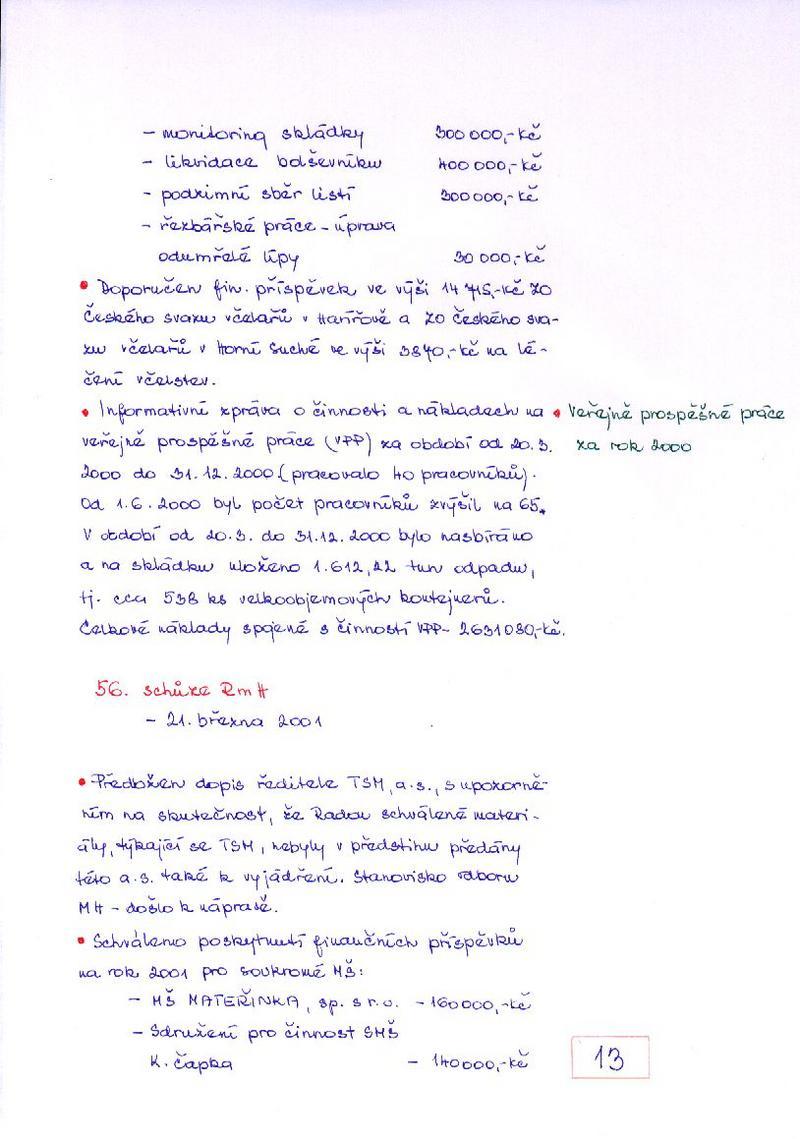 - monitoring skládky 300 000,- Kč
- likvidace bolševníku 400 000,- Kč
- podzimní sběr listí 300 000,- Kč
- řezbářské práce - úprava
odumřelé lípy 30 000,- Kč
• Doporučen fin. příspěvek ve výši 14 715,- Kč ZO
Českého svazu včelařů v Havířově a ZO českého sva-
zu včelařů v Horní Suché ve výši 3840,- Kč na lé-
čení včelstev.
• Informativní zpráva o činnosti a nákladech na
veřejně prospěšné práce (VPP) za období od 20.3.
2000 do 31.12.2000 (pracovalo 40 pracovníků).
Od 1.6.2000 byl počet pracovníků zvýšil na 65.
V období od 20.3. do 31.12.2000 bylo nasbíráno
a na skládku uloženo 1.612,22 tun odpadu,
tj. cca 538 ks velkoobjemových kontejnerů.
Celkové náklady spojené s činností VPP - 2631080,- Kč.
• Veřejně prospěšné práce
za rok 2000
56. schůze RmH
- 21. března 2001
• Předložen dopis ředitele TSM, a.s., s upozorně-
ním na skutečnost, že Radou schválené materi-
ály, týkající se TSM, nebyly v předstihu předány
této a.s. také k vyjádření. Stanovisko odboru
MH - došlo k nápravě.
• Schváleno poskytnutí finančních příspěvků
na rok 2001 pro soukromé MŠ:
- MŠ MATEŘINKA, sp. s r.o. - 160000,- Kč
- Sdružení pro činnost SMŠ
K. čapka - 140000,- Kč
13